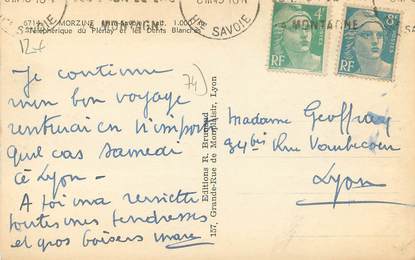 6714 - MORZINE (Hte-Savoie) alt. 1.000
Téléphérique du Pleney et les Dents Blanches
Hte SAVOIE
LA MONTAGNE
RF
RF
8F
74
Je continue
mon bon voyage
rentrerai en n'import
quel cas samedi
à Lyon -
A toi ma
toutes mes tendresses
et gros baisers
Editions R. Brunaud
157, Grande-Rue de Monplaisir, Lyon
Madame Geoffray
94 bis Rue Vendôme
Lyon